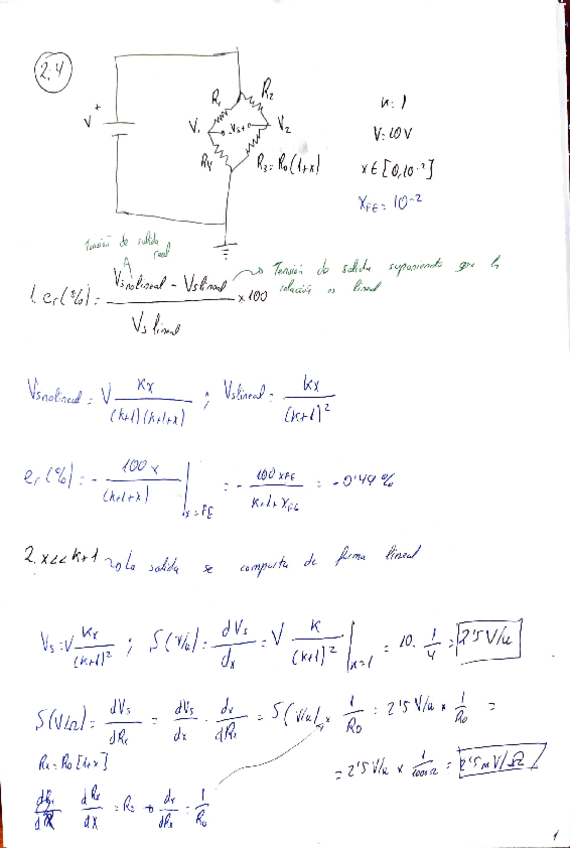 2.4
R1 R2
V + V1 - Vs + V2
R4 R3=R0(1+x)
k: 1
V: 10V
x∈[0,10⁻²]
xFE = 10⁻²
Tensión de salida real
Tensión de salida suponiendo que la relación es lineal
1. er(%) = (Vsnolineal - Vslineal) / Vs lineal × 100
Vsnolineal = V kx / (k+1)(k+1+x) ; Vslineal = kx / (k+1)²
er(%) = - 100x / (k+1+x) |x=FE = - 100xFE / k+1+xFE = -0'49%
2. x<<k+1 → La salida se comporta de forma lineal
Vs = V kx / (k+1)² ; S(V/u) = dVs / dx = V k / (k+1)² |k=1 = 10 · 1/4 = 2'5 V/u
S(V/Ω) = dVs / dR3 = dVs / dx · dx / dR3 = S(V/u) × 1 / R0 = 2'5 V/u × 1 / R0 =
R3 = R0[1+x]
= 2'5 V/u × 1 / 1000Ω = 2'5 mV/Ω
dR3 / dx = R0 → dx / dR3 = 1 / R0
1